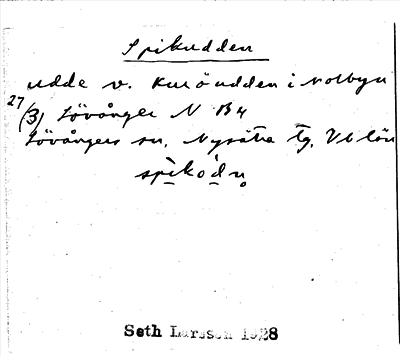 Spikudden
udde v. Kuröudden i Norbyn
27/(3) Lövånger N B4
Lövångers sn, Nysätra tg, Vb län
spikòdn̥
Seth Larsson 1928